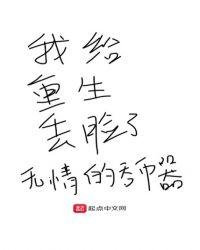 我给
重生
丢脸了
无情的吞币器
起点中文网